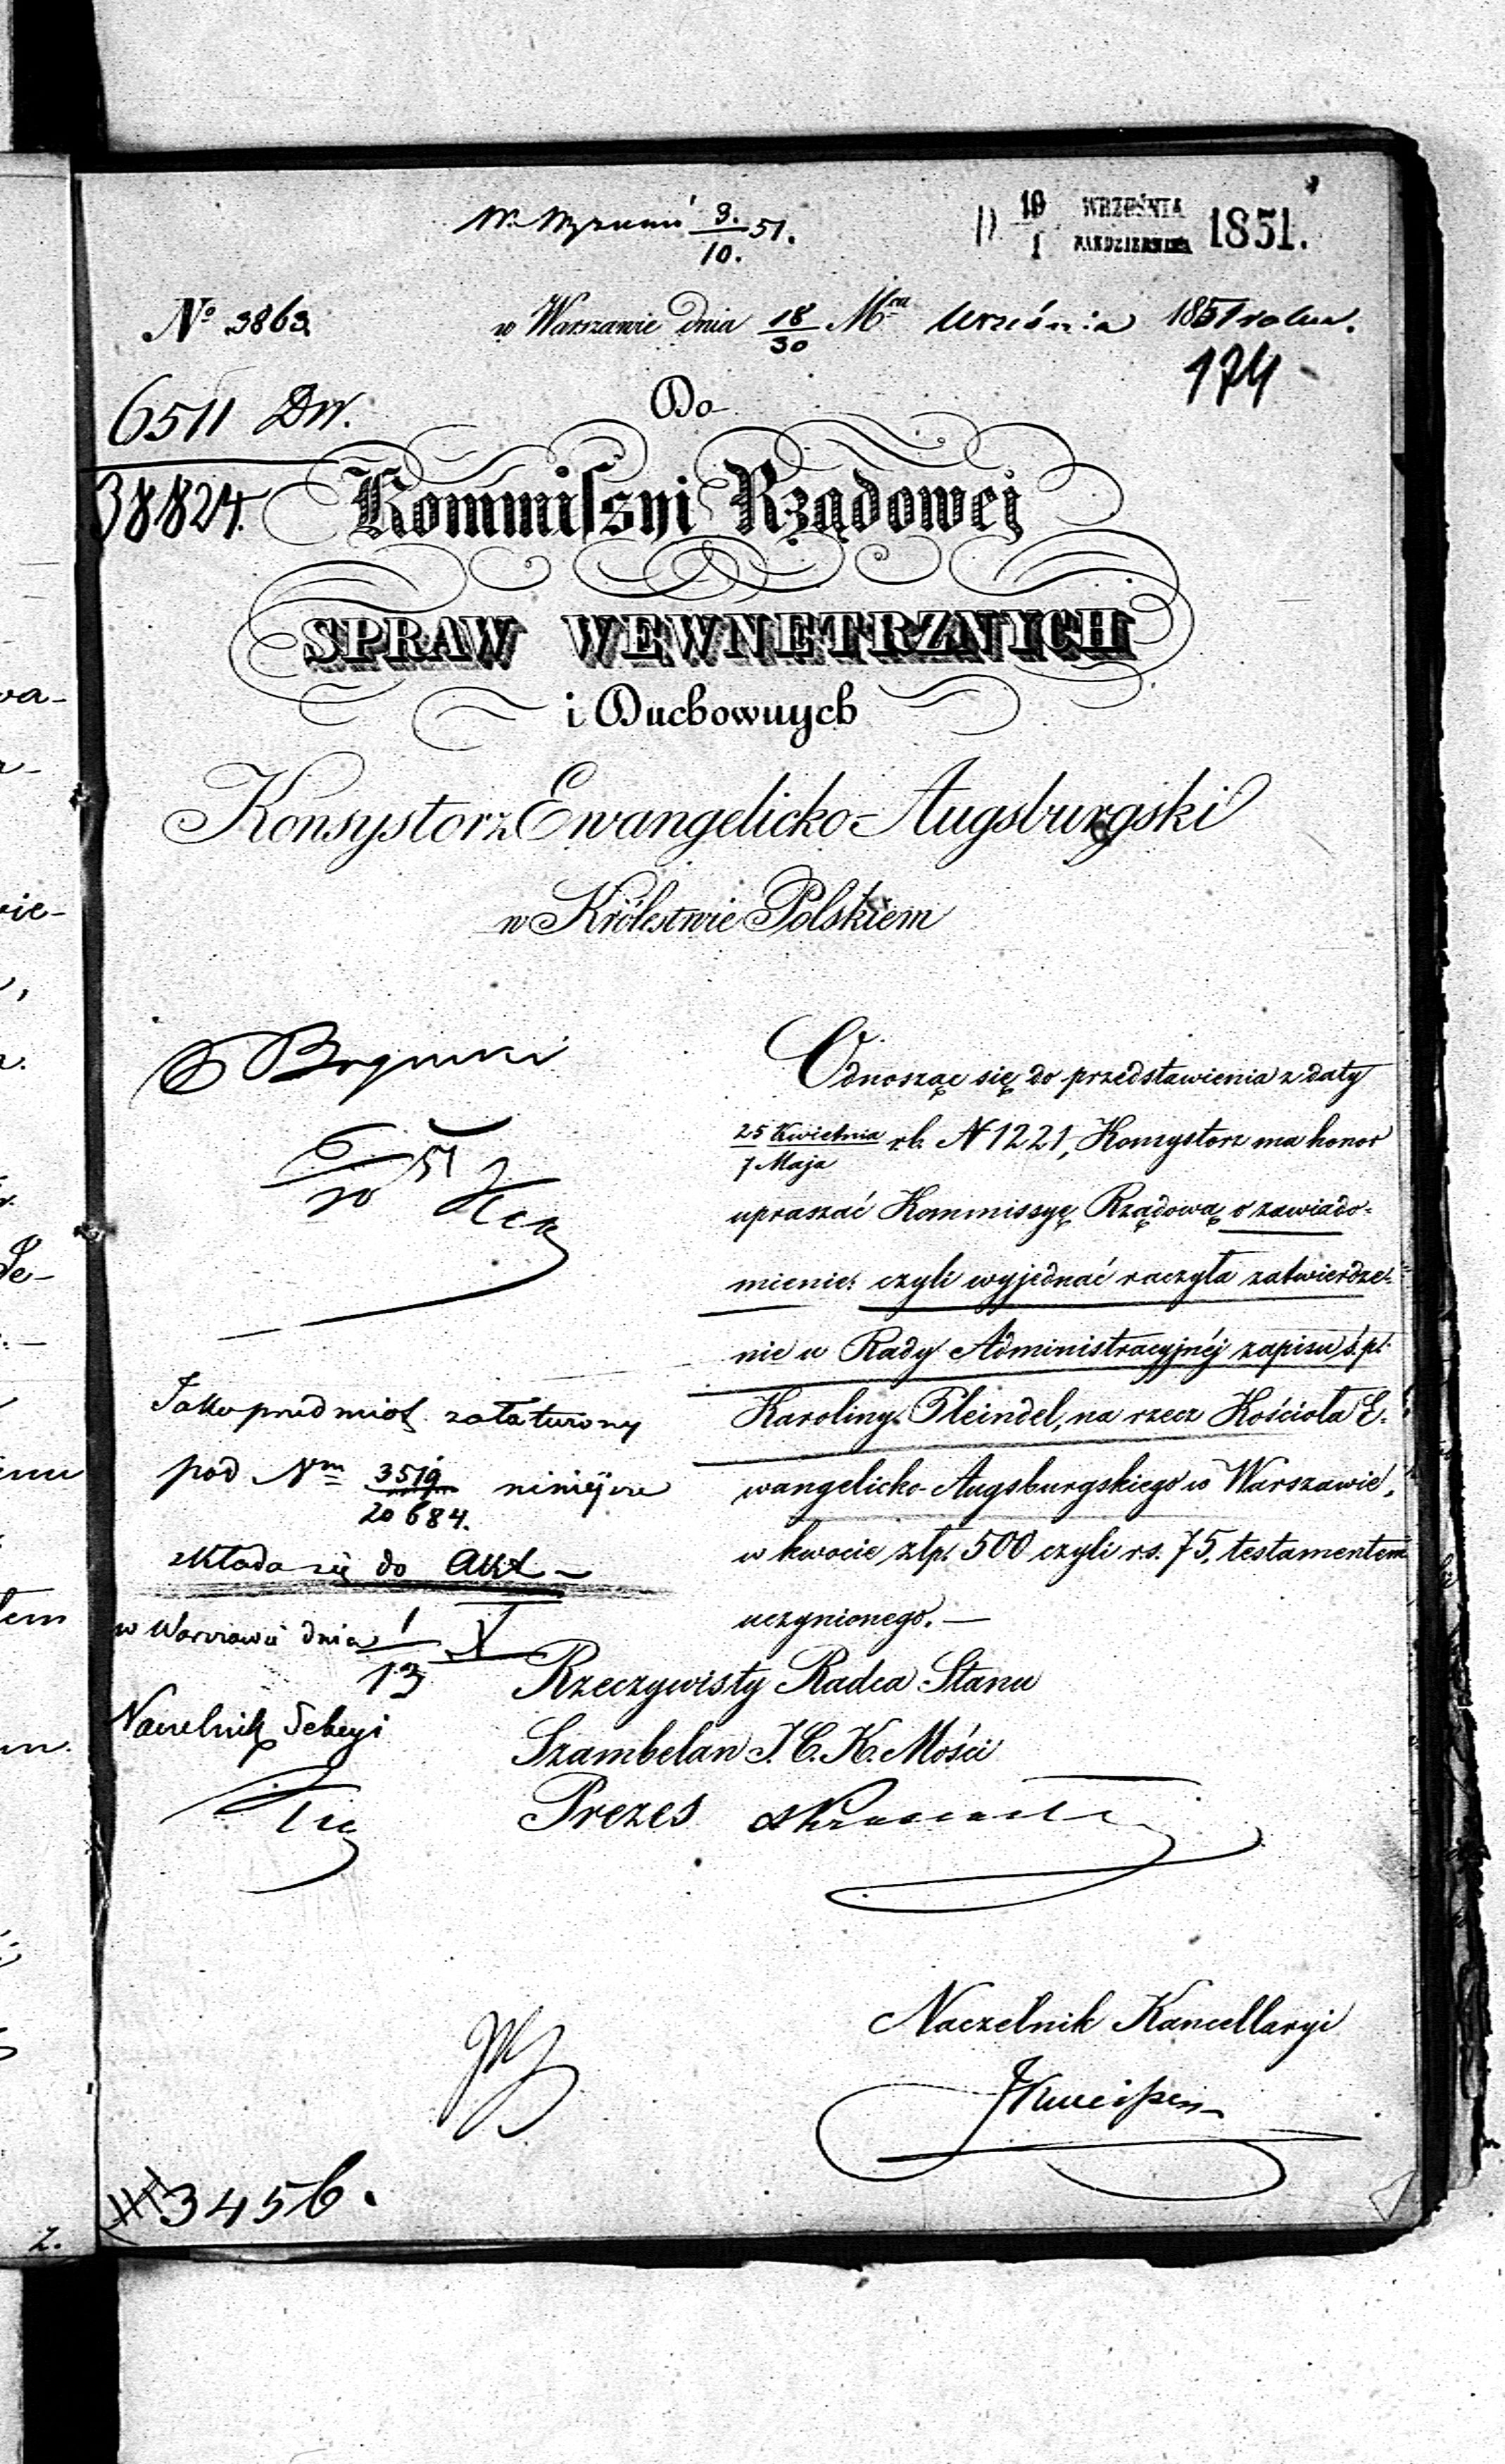 3./10. 51.
19/1 WRZEŚNIA/PAŹDZIERNIKA 1851.
No 3863
w Warszawie dnia 18/30 Mca Września 1851 roku.
174
6511 DW.
38824.
Do
Kommissyi Rządowej
SPRAW WEWNETRZNYCH
i Duchownych
Konsystorz Ewangelicko-Augsburgski
w Królestwie Polskiem
Odnosząc się do przedstawienia z daty
25 Kwietnia/7 Maja r.b. N 1221, Konsystorz ma honor
upraszać Kommissyę Rządową o zawiado-
mienie: czyli wyjednać raczyła zatwierdze-
nie u Rady Administracyjnéj zapisu ś.p.
Karoliny Pleindel, na rzecz Kościoła E-
wangelicko-Augsburgskiego w Warszawie,
w kwocie złp. 500 czyli rs. 75, testamentem
uczynionego. —
6/10 51
Jako przedmiot załatwiony
pod Nm 3519/20684. niniejsze
składa się do Akt —
w Warszawie dnia 1/13 X
Naczelnik Sekcyi
Rzeczywisty Radca Stanu
Szambelan J. C. K. Mości
Prezes
Naczelnik Kancellaryi
3456.